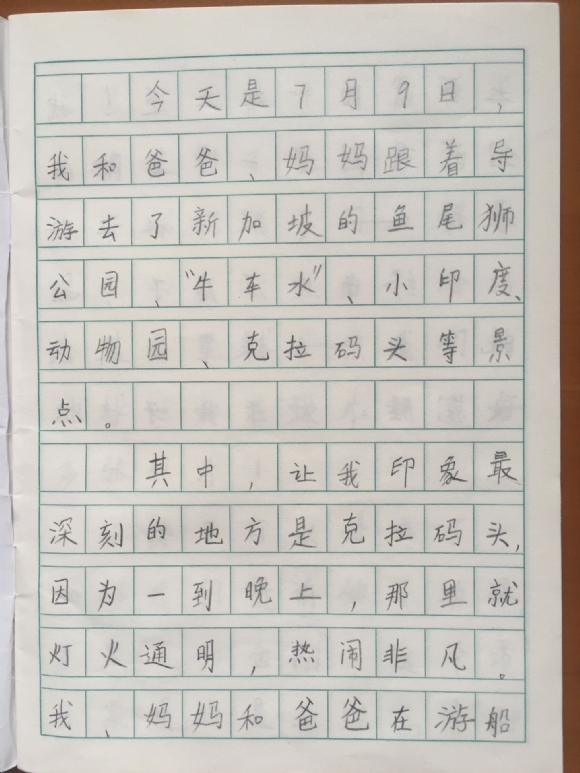 今天是7月9日，
我和爸爸、妈妈跟着导
游去了新加坡的鱼尾狮
公园、“牛车水”、小印度、
动物园、克拉码头等景
点。
其中，让我印象最
深刻的地方是克拉码头，
因为一到晚上，那里就
灯火通明，热闹非凡。
我、妈妈和爸爸在游船